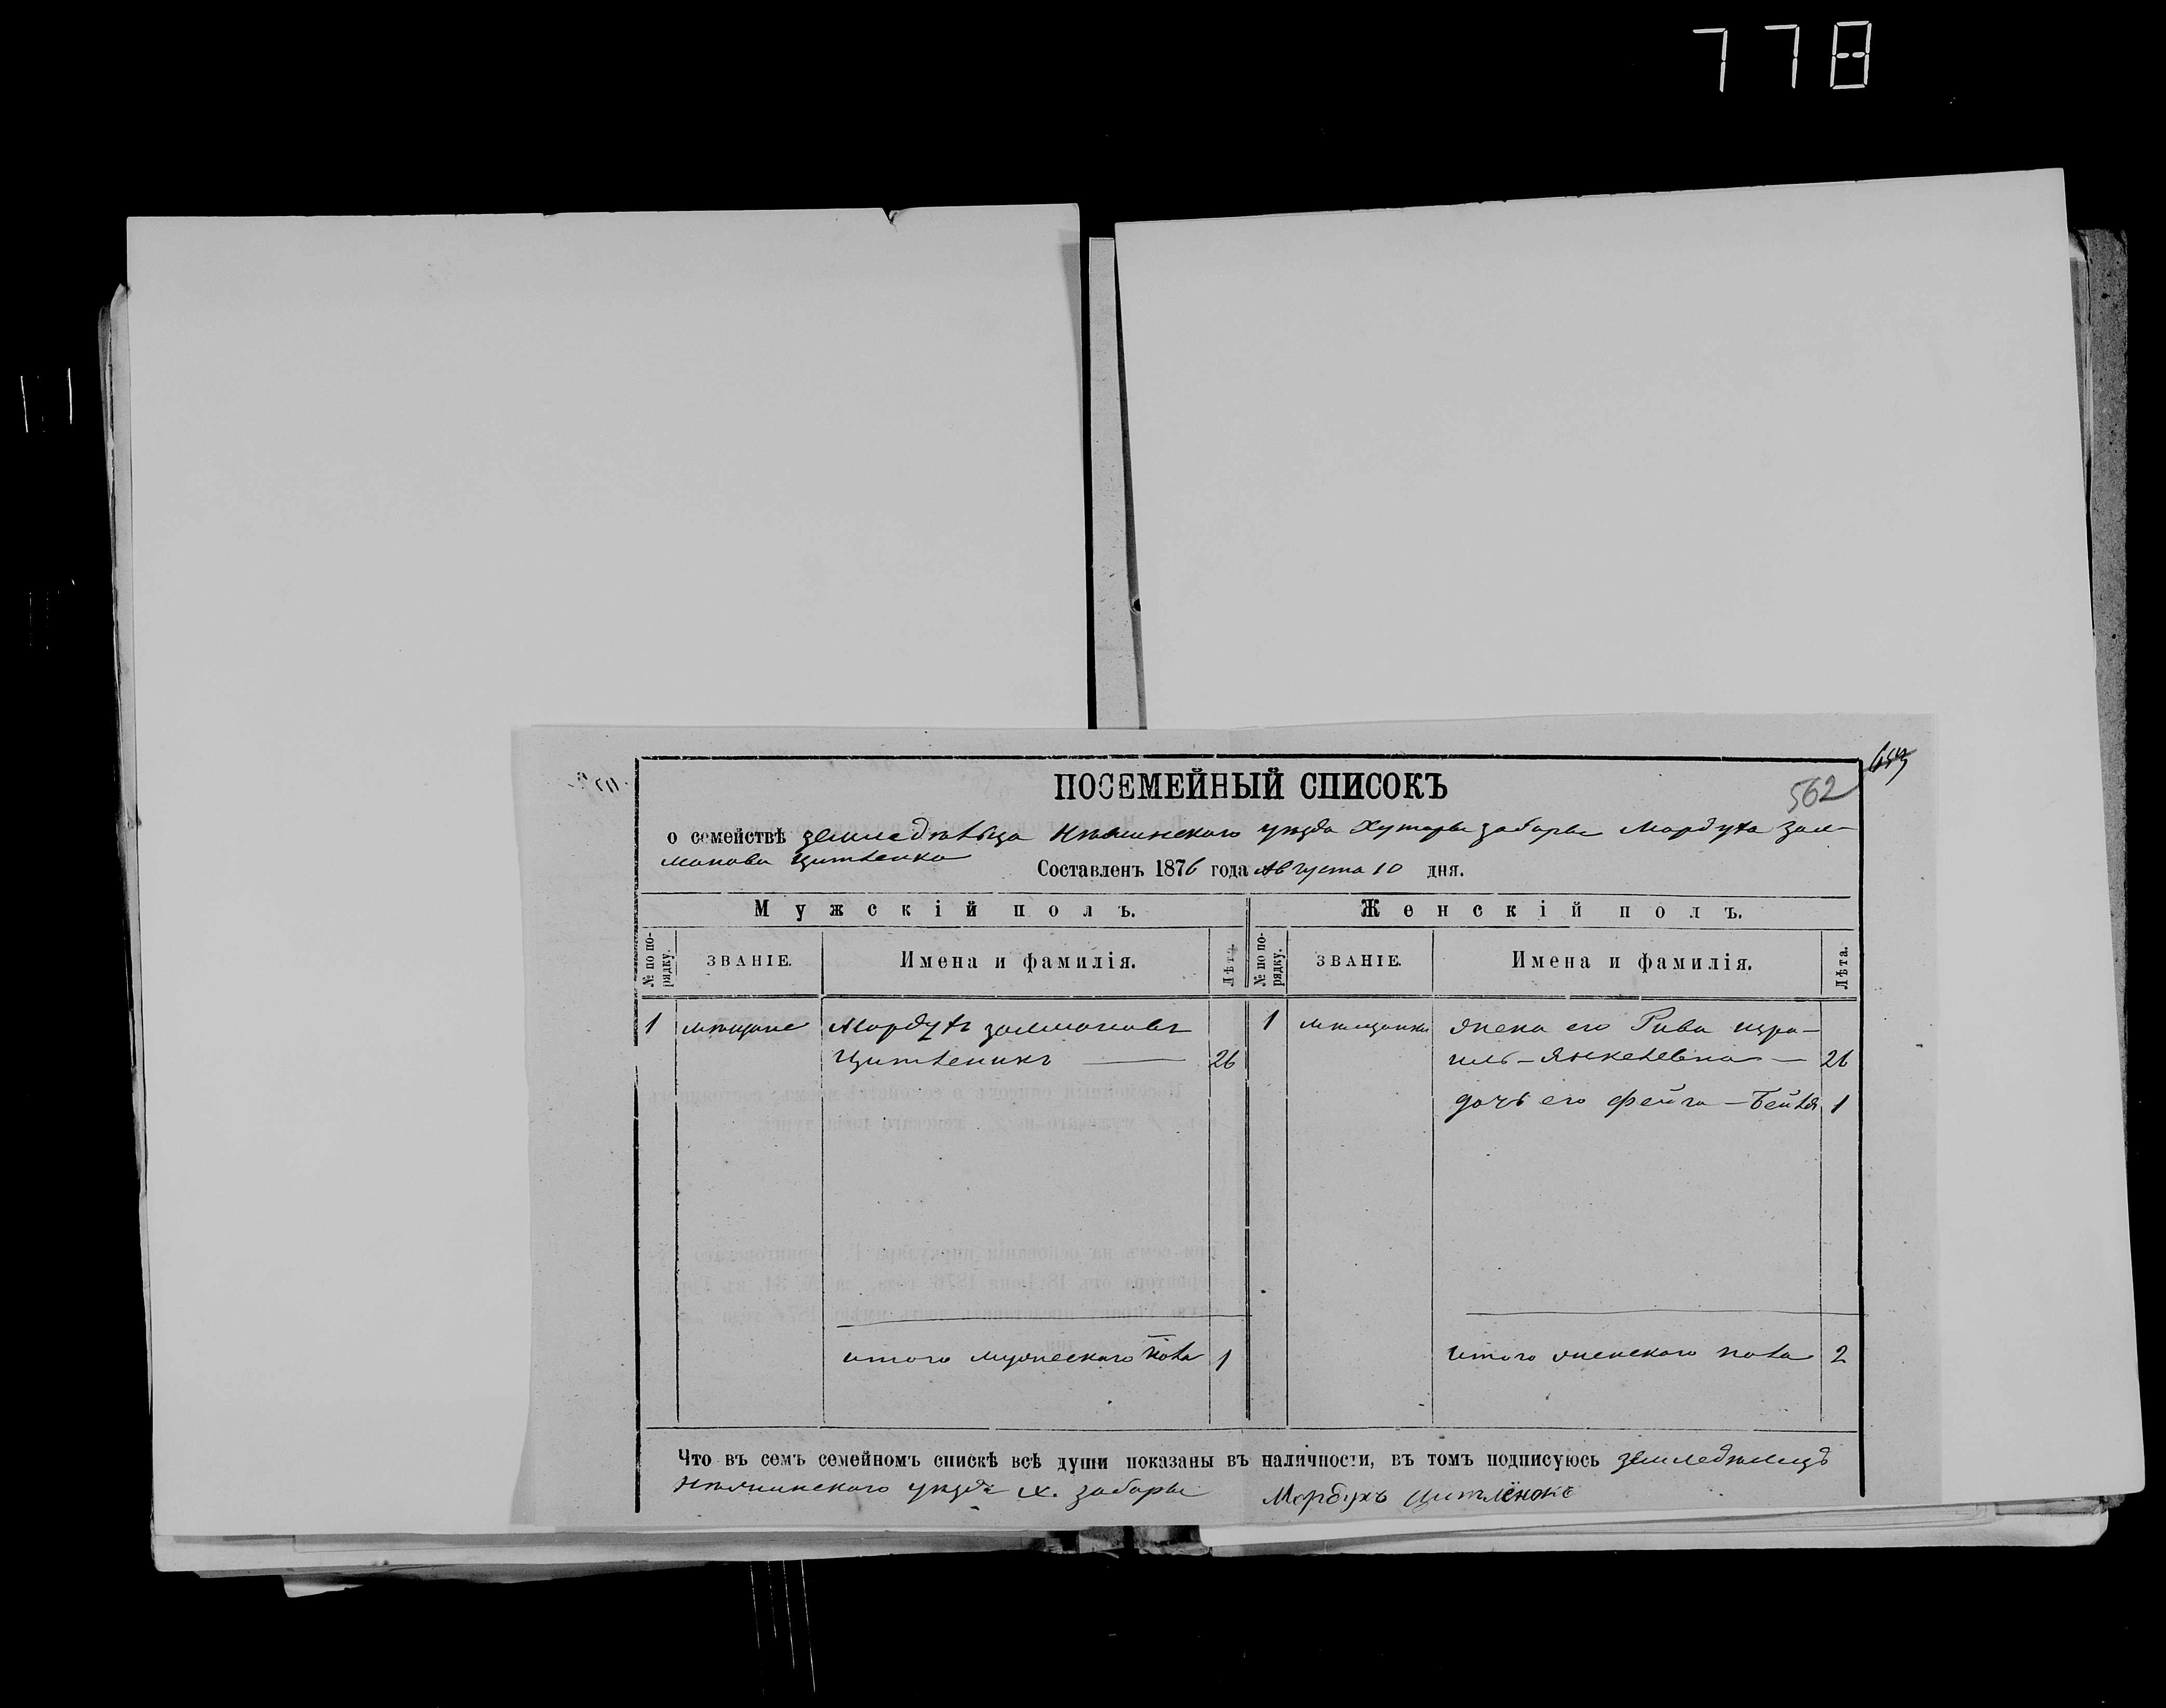 778
ПОСЕМЕЙНЫЙ СПИСОКЪ
562
о семействѣ земледѣльца уѣзда Хутора заборье Мордуха Зал-
манова Цитленка
Составленъ 1876 года Августа 10 дня.
Мужскій полъ.
Женскій полъ.
№ по порядку.
ЗВАНІЕ.
Имена и фамилія.
Лѣта
№ по порядку.
ЗВАНІЕ.
Имена и фамилія.
Лѣта.
1 мѣщане Мордухъ залмановъ
Цитленикъ — 26
1 мѣщанки жена его Рива изра-
иль-Янкелевна — 26
дочь его фейга-Бейля 1
итого мужескаго пола 1
итого женскаго пола 2
Что въ семъ семейномъ спискѣ всѣ души показаны въ наличности, въ томъ подписуюсь земледѣлецъ
уѣзда х. заборье Мордухъ Цитлёнокъ